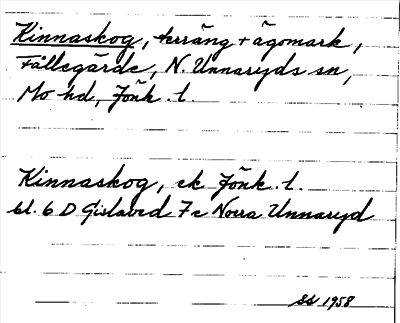 Kinnaskog, terräng + ägomark,
Fällegärde, N. Unnaryds sn,
Mo hd, Jönk. l.
Kinnaskog, ek Jönk. l.
bl. 6 D Gislaved 7 c Norra Unnaryd
SS 1958